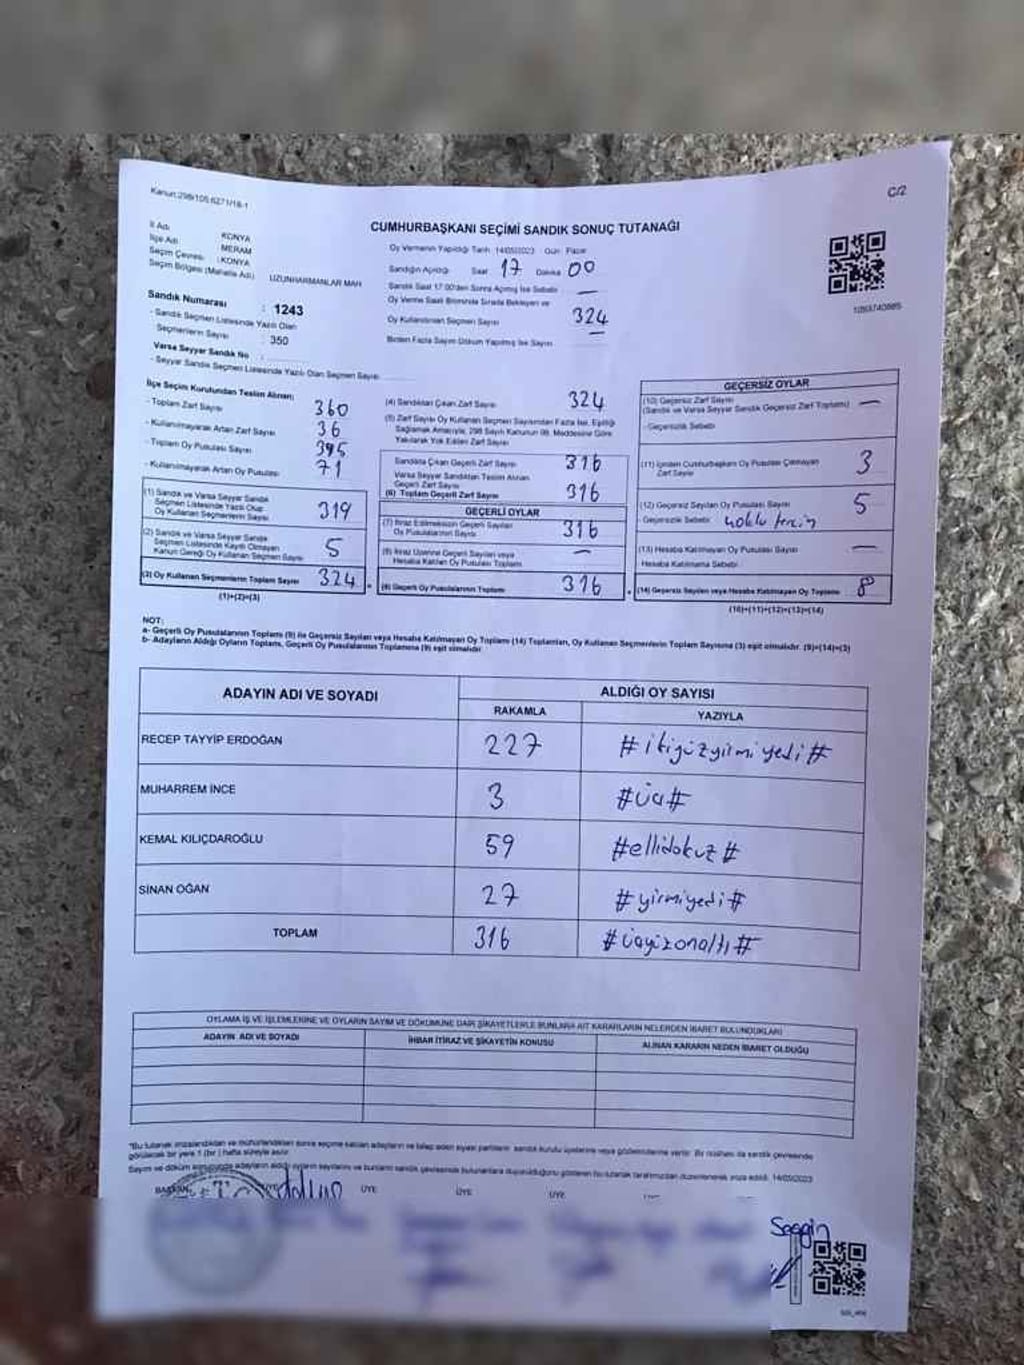 Kanun:298/105.6271/18-1
C/2
CUMHURBAŞKANI SEÇİMİ SANDIK SONUÇ TUTANAĞI
İl Adı : KONYA
İlçe Adı : MERAM
Seçim Çevresi : KONYA
Seçim Bölgesi (Mahalle Adı) : UZUNHARMANLAR MAH
Oy Vermenin Yapıldığı Tarih: 14/05/2023 Gün: Pazar
Sandığın Açıldığı Saat 17 Dakika 00
Sandık Saat 17:00'den Sonra Açılmış İse Sebebi: —
Oy Verme Saati Bitiminde Sırada Bekleyen ve
Oy Kullandırılan Seçmen Sayısı 324
Birden Fazla Sayım Döküm Yapılmış İse Sayısı —
Sandık Numarası : 1243
- Sandık Seçmen Listesinde Yazılı Olan
Seçmenlerin Sayısı : 350
Varsa Seyyar Sandık No :
- Seyyar Sandık Seçmen Listesinde Yazılı Olan Seçmen Sayısı
İlçe Seçim Kurulundan Teslim Alınan;
- Toplam Zarf Sayısı 360
- Kullanılmayarak Artan Zarf Sayısı 36
- Toplam Oy Pusulası Sayısı 395
- Kullanılmayarak Artan Oy Pusulası 71
(1) Sandık ve Varsa Seyyar Sandık
Seçmen Listesinde Yazılı Olup
Oy Kullanan Seçmenlerin Sayısı 319
(2) Sandık ve Varsa Seyyar Sandık
Seçmen Listesinde Kayıtlı Olmayan
Kanun Gereği Oy Kullanan Seçmen Sayısı 5
(3) Oy Kullanan Seçmenlerin Toplam Sayısı 324
(1)+(2)=(3)
(4) Sandıktan Çıkan Zarf Sayısı 324
(5) Zarf Sayısı Oy Kullanan Seçmen Sayısından Fazla İse, Eşitliği
Sağlamak Amacıyla, 298 Sayılı Kanunun 98. Maddesine Göre
Yakılarak Yok Edilen Zarf Sayısı
Sandıkta Çıkan Geçerli Zarf Sayısı 316
Varsa Seyyar Sandıktan Teslim Alınan
Geçerli Zarf Sayısı
(6) Toplam Geçerli Zarf Sayısı 316
GEÇERLİ OYLAR
(7) İtiraz Edilmeksizin Geçerli Sayılan
Oy Pusulalarının Sayısı 316
(8) İtiraz Üzerine Geçerli Sayılan veya
Hesaba Katılan Oy Pusulası Toplamı —
(9) Geçerli Oy Pusulalarının Toplamı 316
GEÇERSİZ OYLAR
(10) Geçersiz Zarf Sayısı —
(Sandık ve Varsa Seyyar Sandık Geçersiz Zarf Toplamı)
- Geçersizlik Sebebi:
(11) İçinden Cumhurbaşkanı Oy Pusulası Çıkmayan
Zarf Sayısı 3
(12) Geçersiz Sayılan Oy Pusulası Sayısı 5
- Geçersizlik Sebebi:
(13) Hesaba Katılmayan Oy Pusulası Sayısı —
Hesaba Katılmama Sebebi:
(14) Geçersiz Sayılan veya Hesaba Katılmayan Oy Toplamı 8
(10)+(11)+(12)+(13)=(14)
NOT:
a- Geçerli Oy Pusulalarının Toplamı (9) ile Geçersiz Sayılan veya Hesaba Katılmayan Oy Toplamı (14) Toplamları, Oy Kullanan Seçmenlerin Toplam Sayısına (3) eşit olmalıdır. (9)+(14)=(3)
b- Adayların Aldığı Oyların Toplamı, Geçerli Oy Pusulalarının Toplamına (9) eşit olmalıdır.
ADAYIN ADI VE SOYADI
ALDIĞI OY SAYISI
RAKAMLA YAZIYLA
RECEP TAYYİP ERDOĞAN 227 #ikiyüzyirmiyedi#
MUHARREM İNCE 3 #üç#
KEMAL KILIÇDAROĞLU 59 #ellidokuz#
SİNAN OĞAN 27 #yirmiyedi#
TOPLAM 316 #üçyüzonaltı#
OYLAMA İŞ VE İŞLEMLERİNE VE OYLARIN SAYIM VE DÖKÜMÜNE DAİR ŞİKAYETLERLE BUNLARA AİT KARARLARIN NELERDEN İBARET BULUNDUKLARI
ADAYIN ADI VE SOYADI
İHBAR İTİRAZ VE ŞİKAYETİN KONUSU
ALINAN KARARIN NEDEN İBARET OLDUĞU
*Bu tutanak imzalandıktan ve mühürlendikten sonra seçime katılan adayların ve talep eden siyasi partilerin sandık kurulu üyelerine veya gözlemcilerine verilir. Bu nüshası da sandık çevresinde
görülecek bir yere 1 (bir) hafta süreyle asılır.
BAŞKAN ÜYE ÜYE ÜYE ÜYE
Seçgin